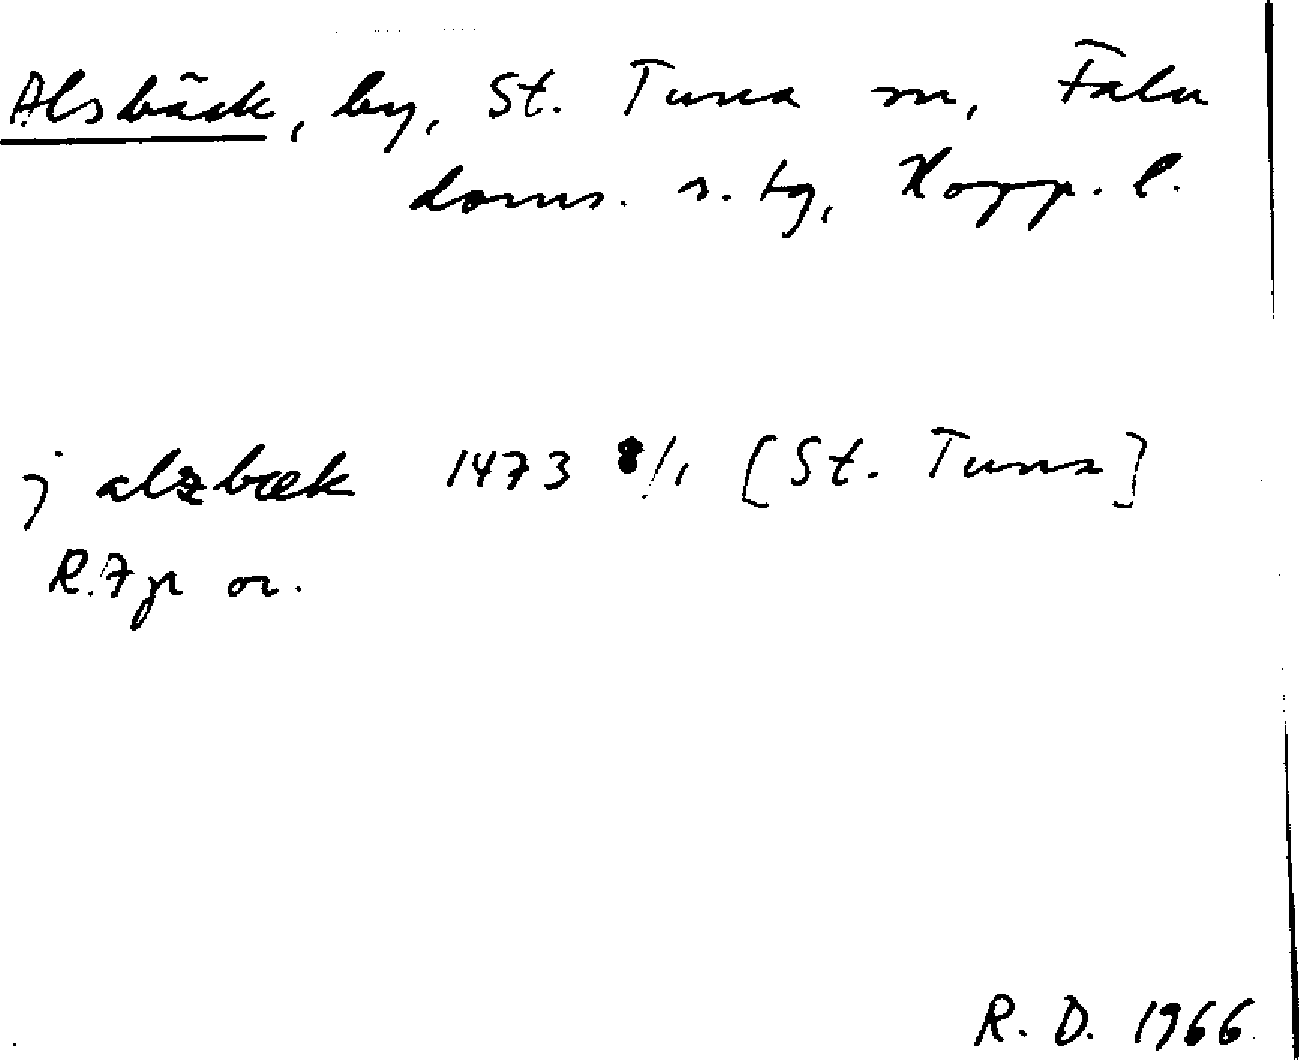 Alsbäck, by, St. Tuna sn, Falu
doms. s. tg, Kopp. l.
j alzbæk 1473 8/1 [St. Tuna]
R.7 or.
R. D. 1966